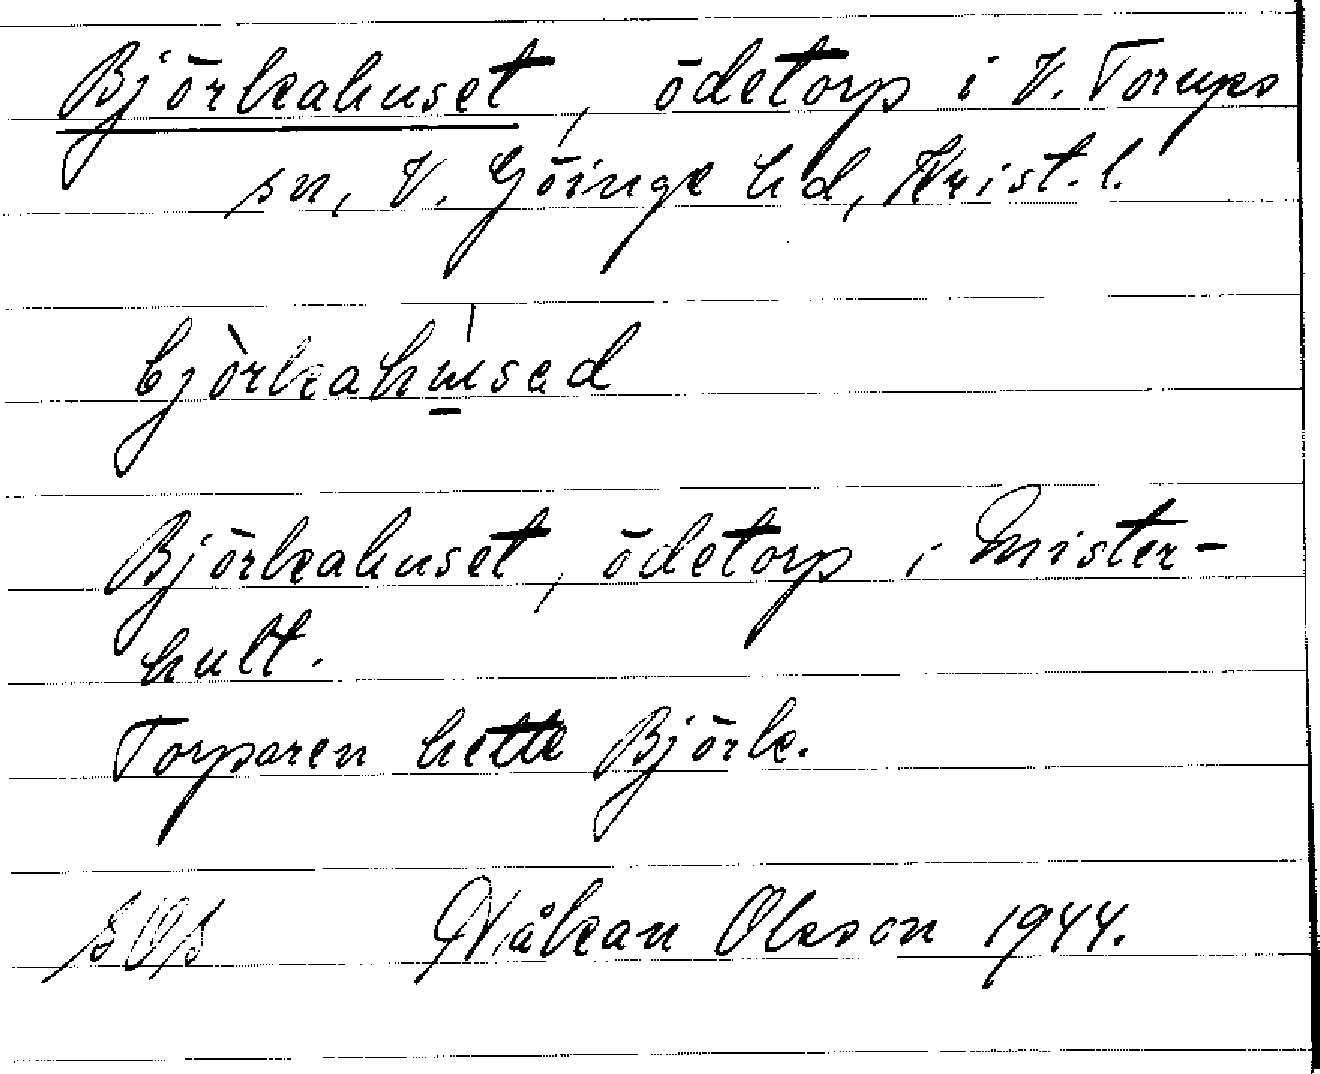 Björkahuset, ödetorp i V. Torups
sn, V. Göinge hd, Krist. l.
bjòrkahu̱ꞌsed
Björkahuset, ödetorp i Mister-
hult.
Torparen hette Björk.
Håkan Olsson 1944.